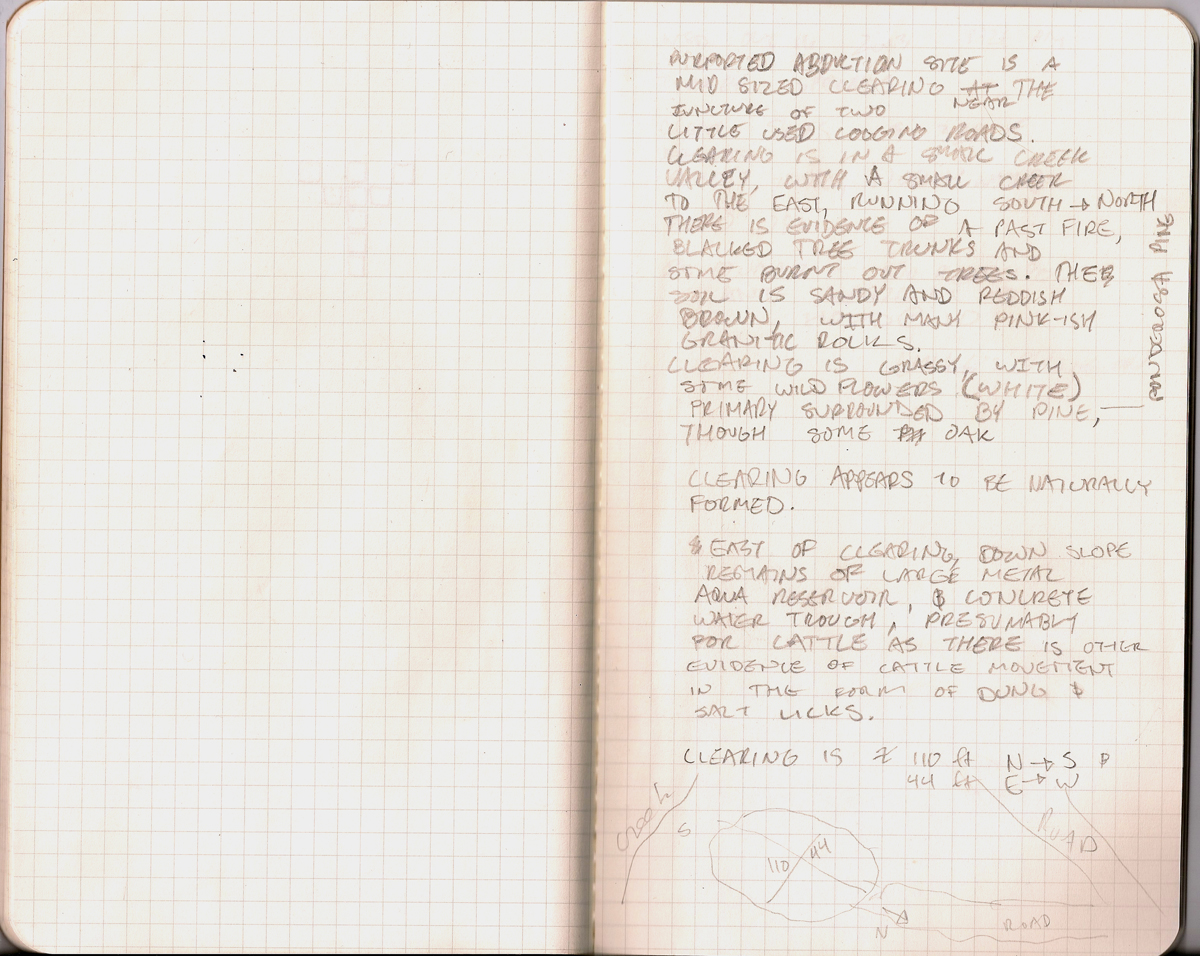 PURPORTED ABDUCTION SITE IS A
MID SIZED CLEARING AT THE
NEAR
JUNCTURE OF TWO
LITTLE USED LOGGING ROADS.
CLEARING IS IN A SMALL CREEK
VALLEY, WITH A SMALL CREEK
TO THE EAST, RUNNING SOUTH → NORTH
THERE IS EVIDENCE OF A PAST FIRE,
BLACKED TREE TRUNKS AND
SOME BURNT OUT TREES. THE
SOIL IS SANDY AND REDDISH
BROWN, WITH MANY PINK-ISH
GRANITIC ROCKS.
CLEARING IS GRASSY, WITH
SOME WILD FLOWERS (WHITE)
PRIMARY SURROUNDED BY PINE,
PONDEROSA PINE
THOUGH SOME OAK
CLEARING APPEARS TO BE NATURALLY
FORMED.
EAST OF CLEARING, DOWN SLOPE
REMAINS OF LARGE METAL
AQUA RESERVOIR, & CONCRETE
WATER TROUGH, PRESUMABLY
FOR CATTLE AS THERE IS OTHER
EVIDENCE OF CATTLE MOVEMENT
IN THE FORM OF DUNG &
SALT LICKS.
CLEARING IS ≈ 110 ft N → S
44 ft E → W
creek
S
110
44
ROAD
N
ROAD